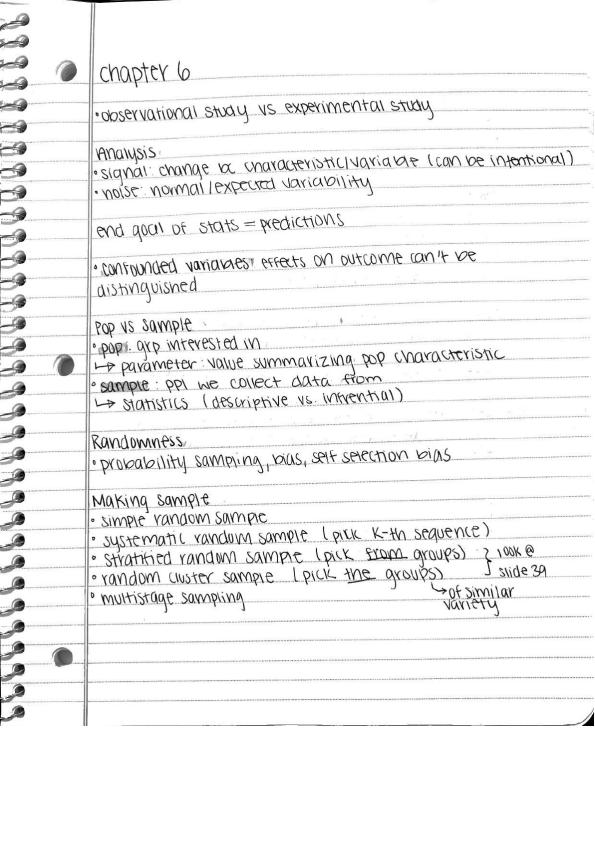 chapter 6
• observational study vs experimental study
Analysis
• signal: change bc characteristic/variable (can be intentional)
• noise: normal/expected variability
end goal of stats = predictions
• confounded variables: effects on outcome can't be
distinguished
Pop vs Sample
• pop: grp interested in
↳ parameter: value summarizing pop characteristic
• sample: ppl we collect data from
↳ statistics (descriptive vs. infrential)
Randomness
• probability sampling, bias, self selection bias
Making sample
• simple random sample
• systematic random sample (pick K-th sequence)
• stratified random sample (pick from groups) } look @
• random cluster sample (pick the groups) } slide 39
↳ of similar
• multistage sampling
variety